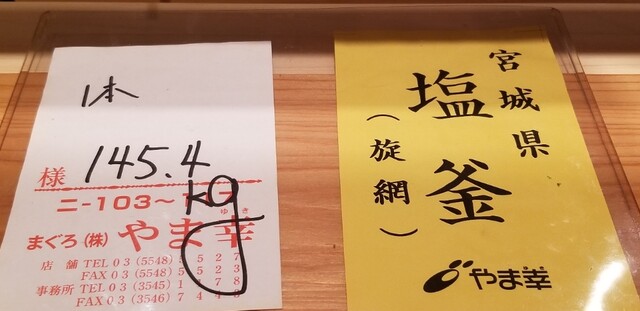 1本
様
145.4
kg
ニ-103～117
ゆき
まぐろ(株) やま幸
店舗 TEL 03 (5548) 5527
FAX 03 (5548) 5523
事務所 TEL 03 (3545) 1178
FAX 03 (3546)
宮城県
塩釜
(旋網)
やま幸